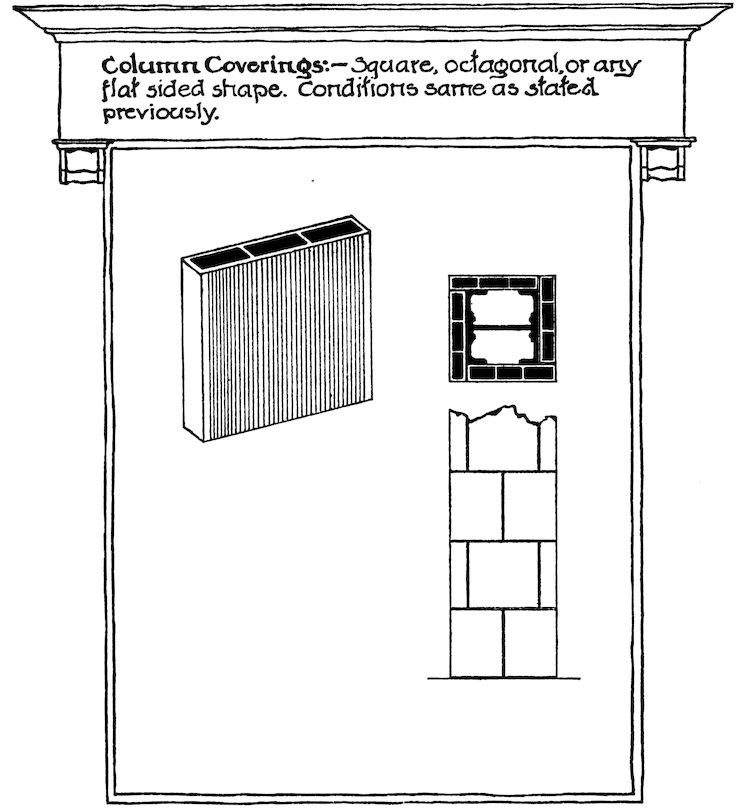 Column Coverings:— Square, octagonal, or any
flat sided shape. Conditions same as stated
previously.